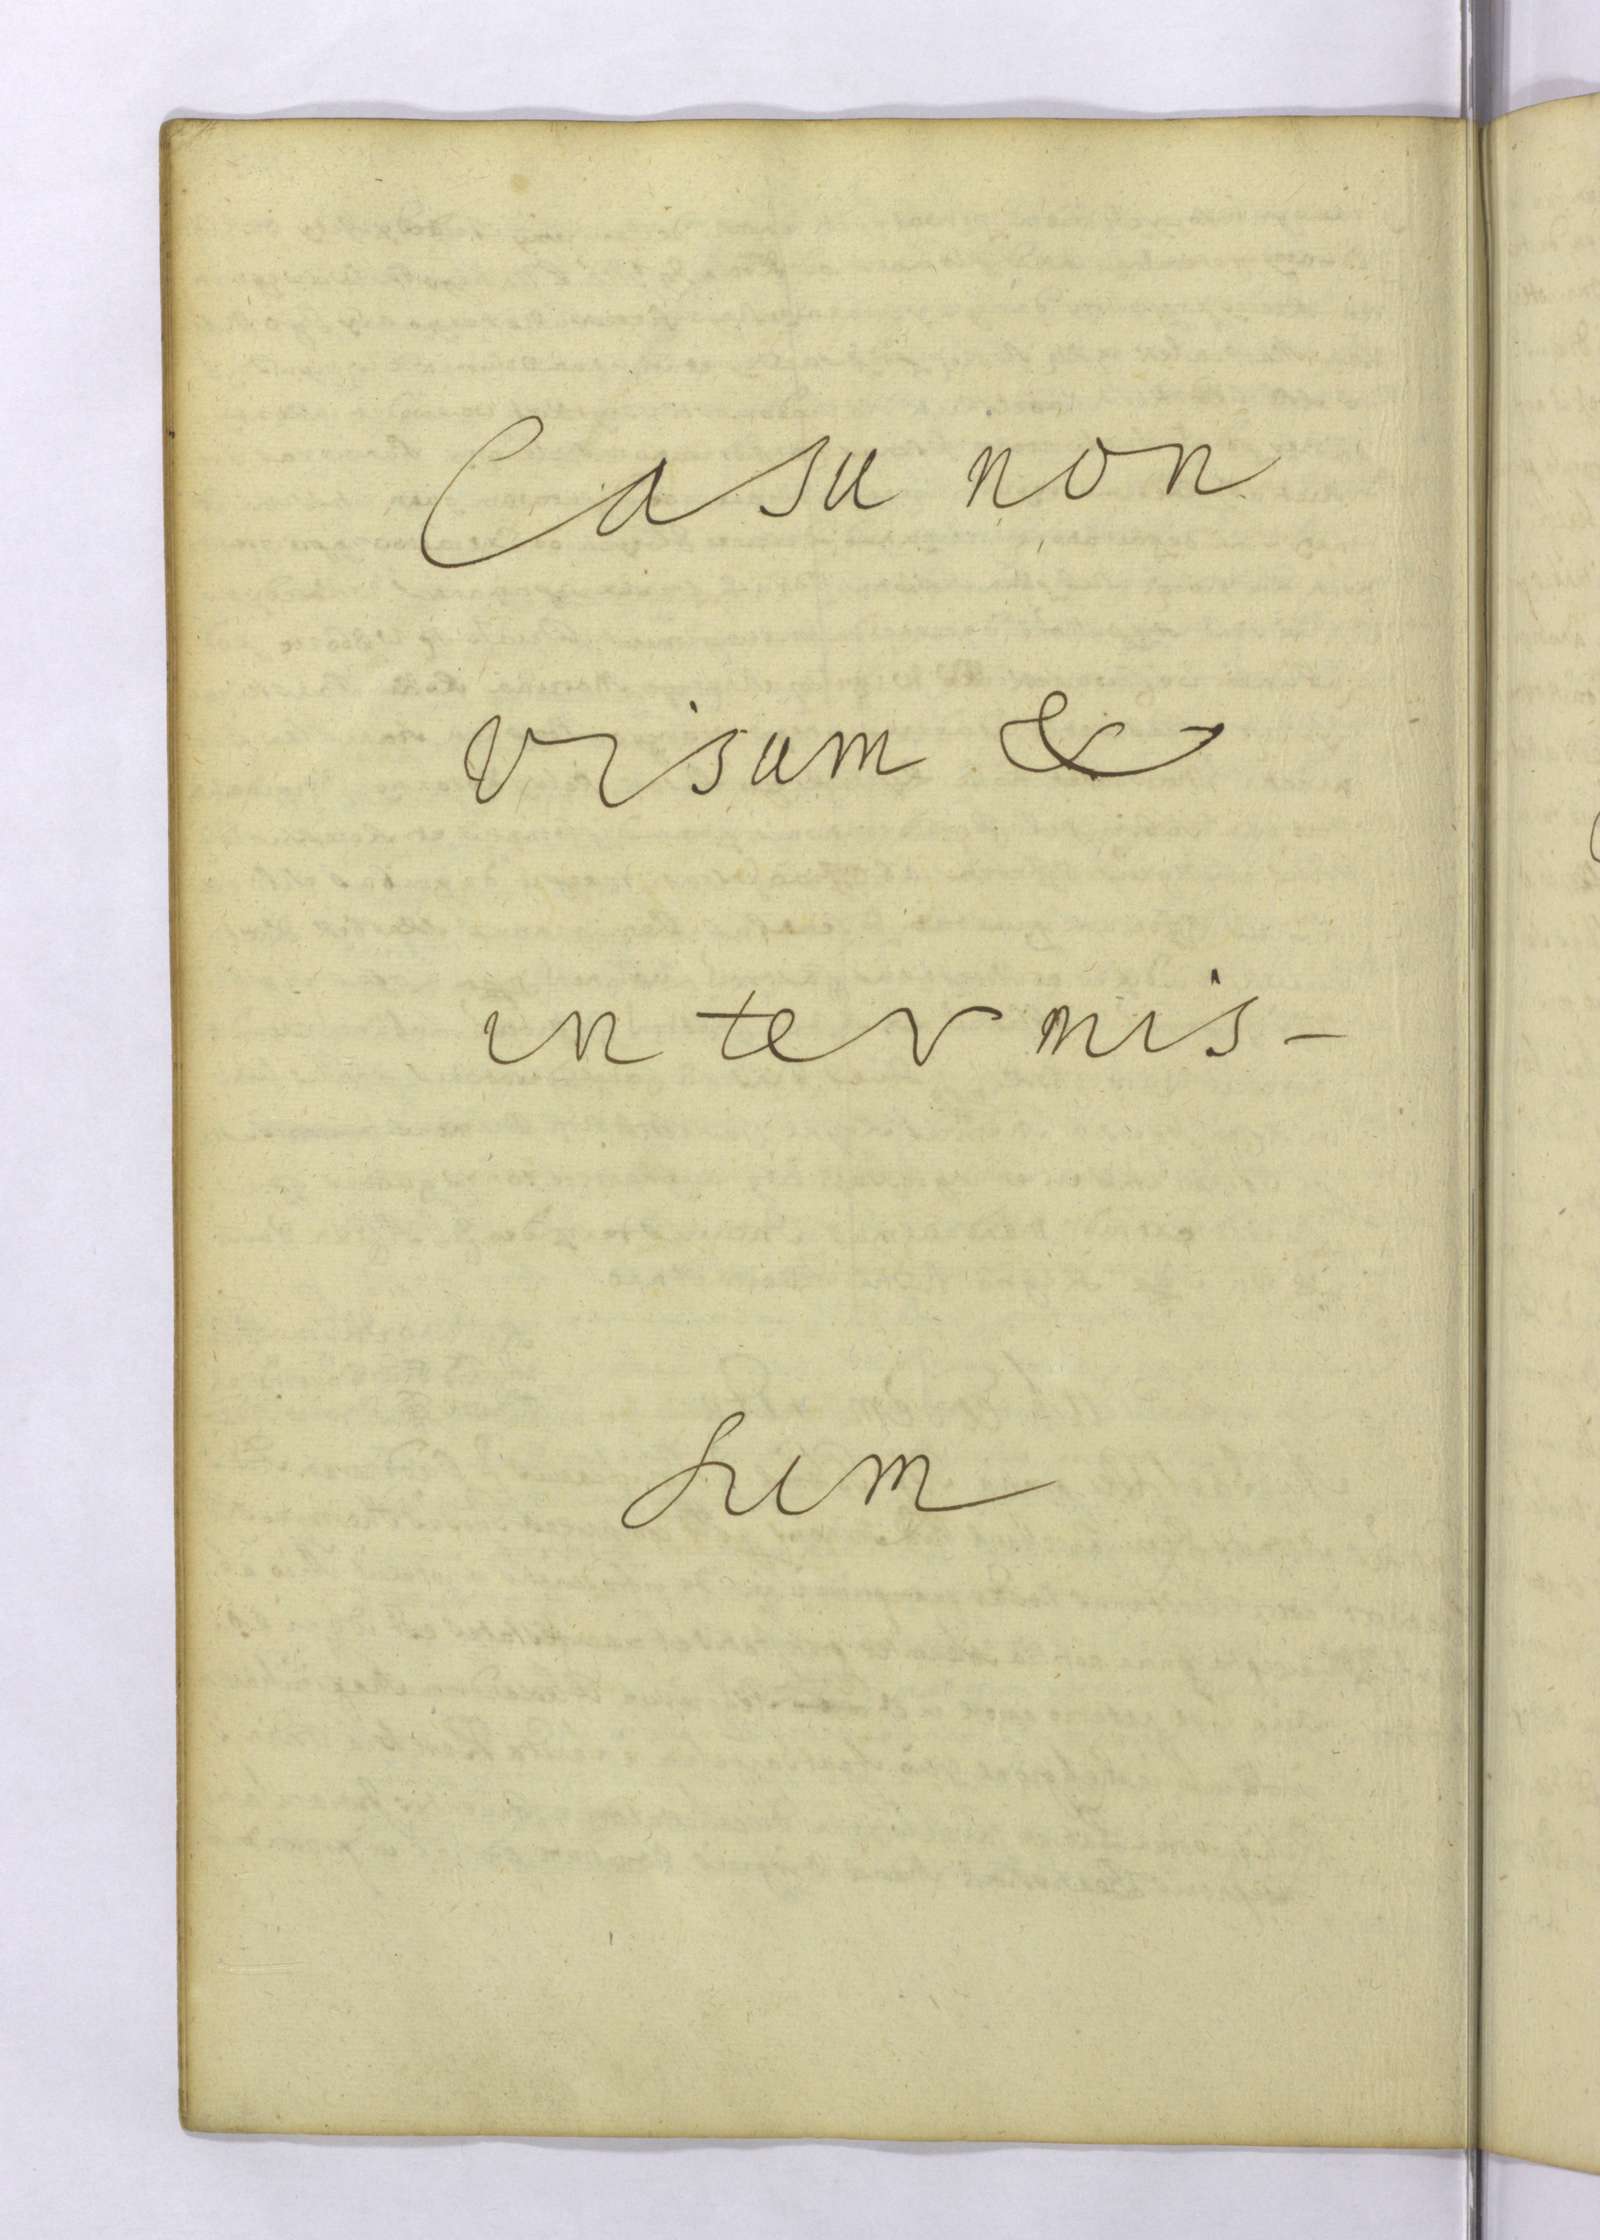 Casu non
visum &
intermis-
sum